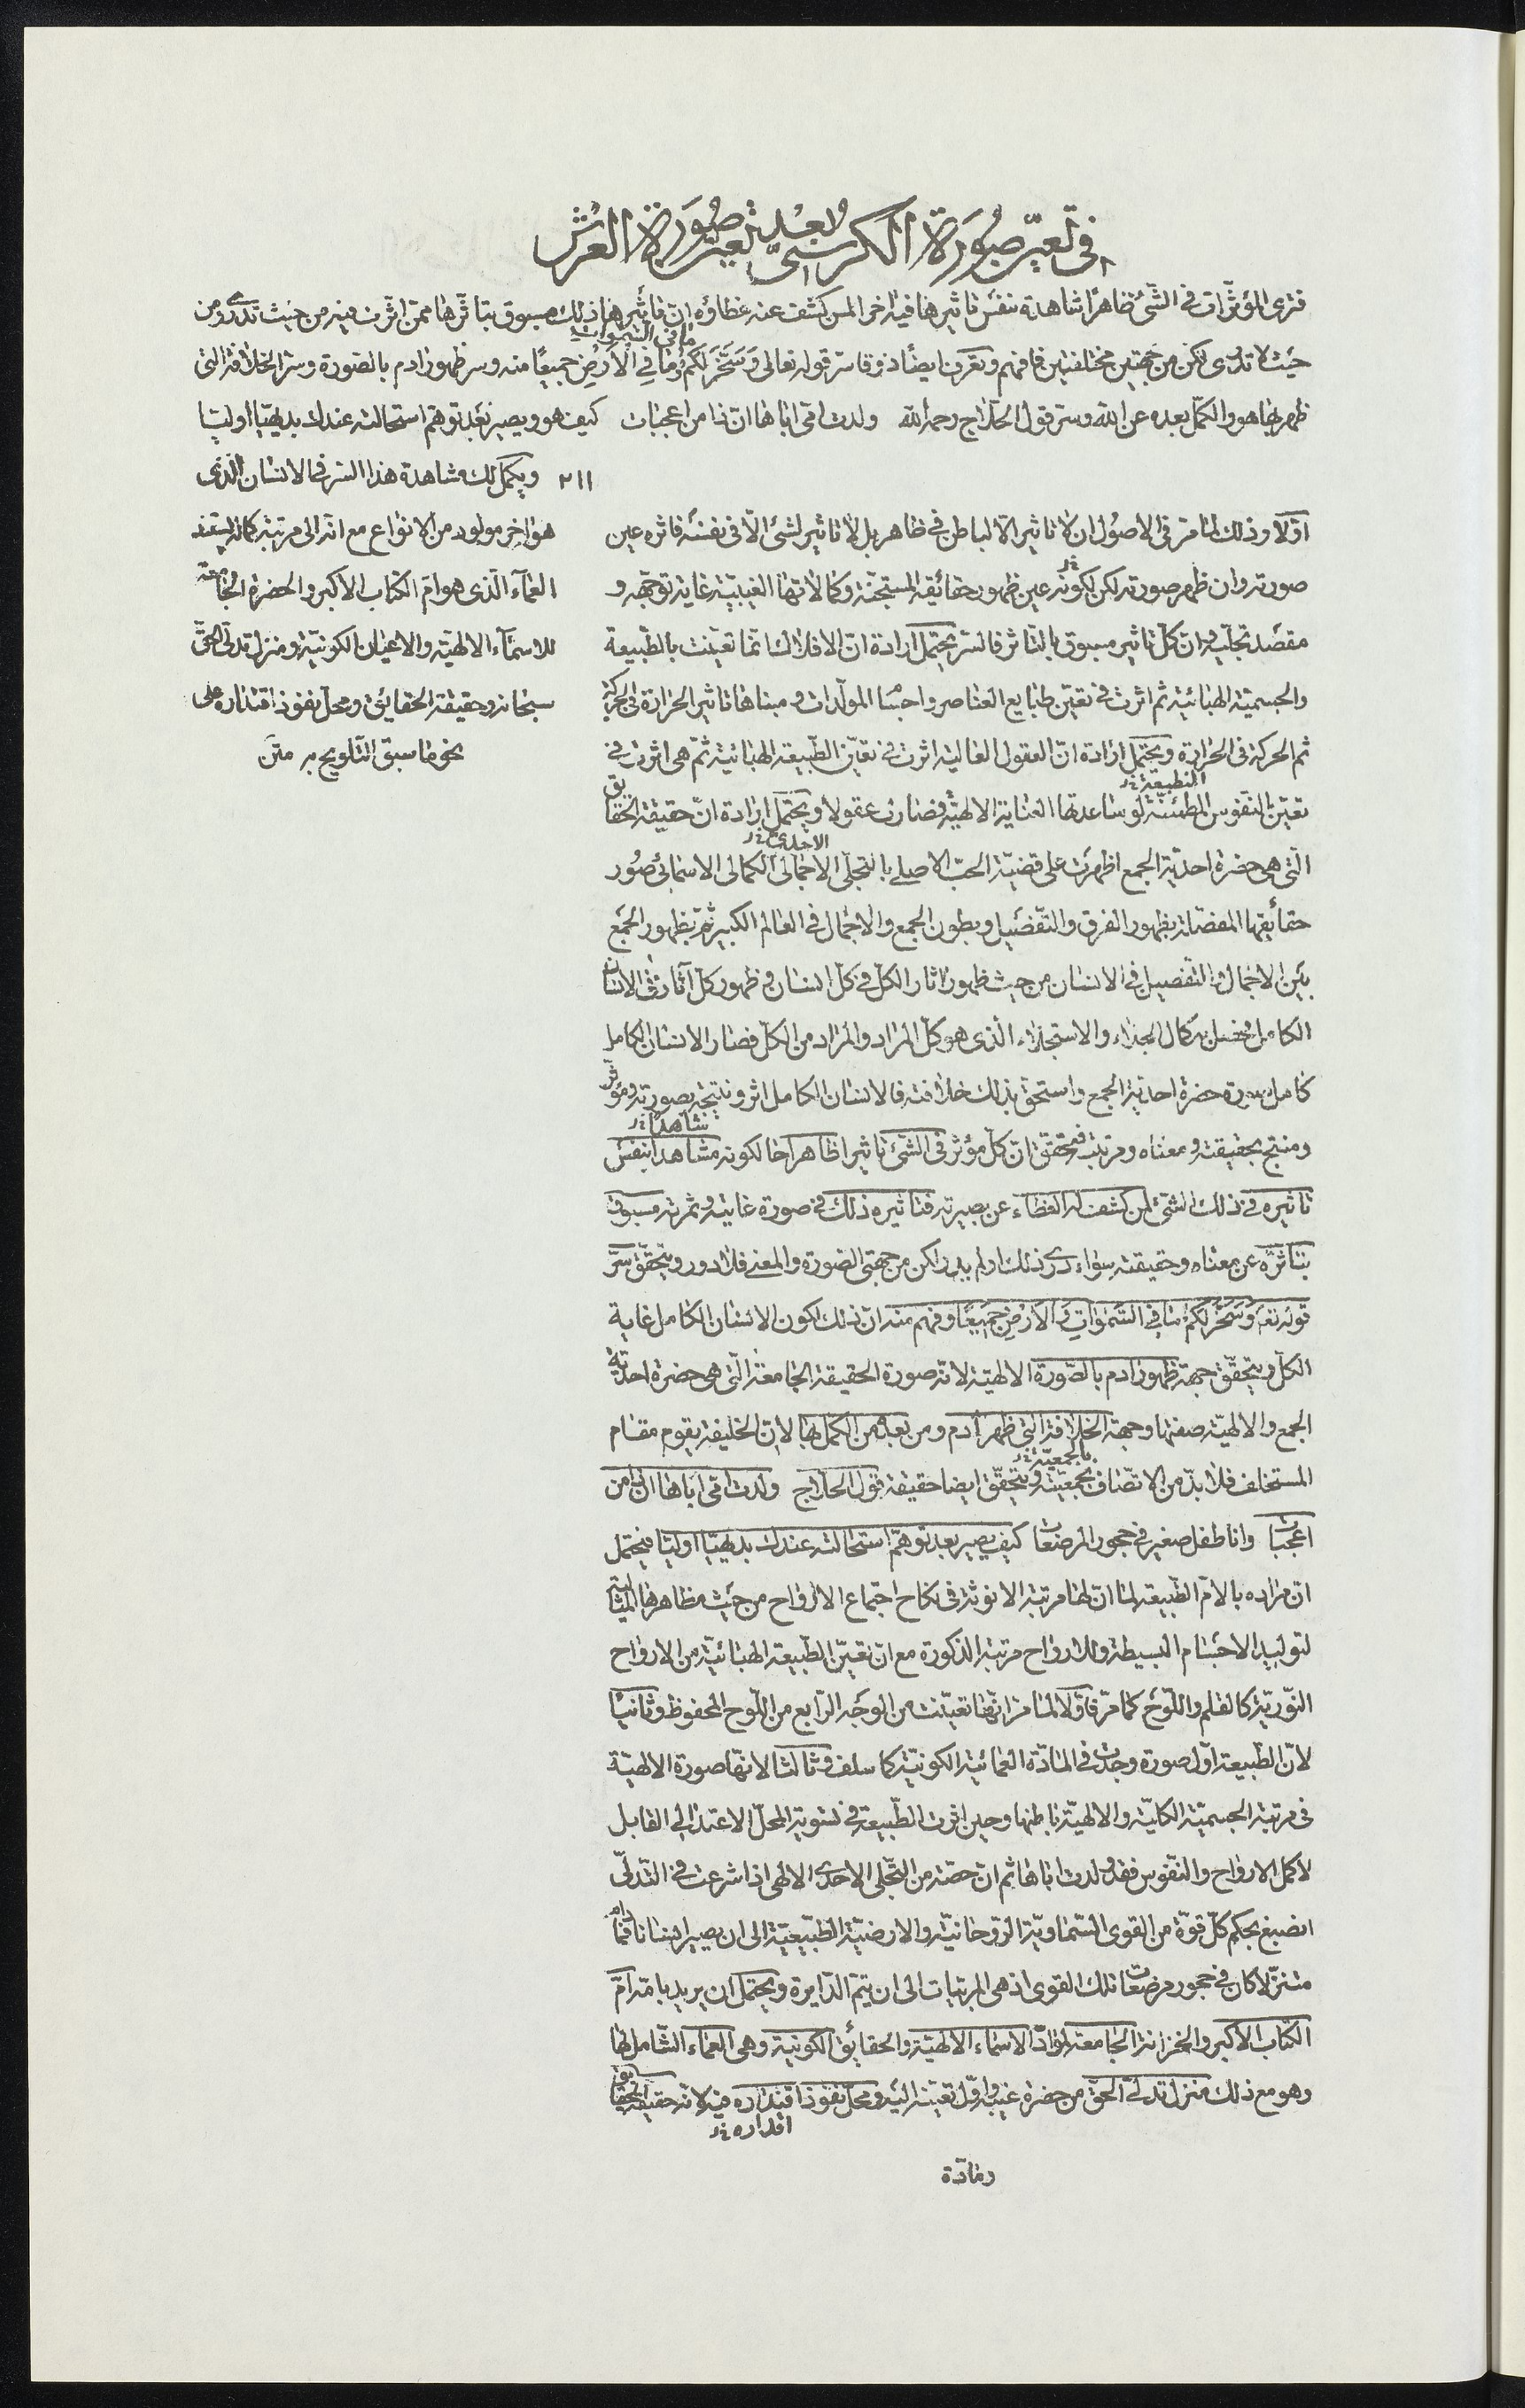 في تعيّن صورة الكرسيّ بعد تعيّن صورة العرش
فترى المؤثّرات في الشّئ ظاهرًا شاهدة نفس تاثيرها فيه اخرا لمن كشف عنه غطاؤه انّ تأثيرها ذلك مسبوق بتاثّرها ممّن اثّرت فيه من حيث تدرى ومن
ما في السّموات
حيث لا تدرى لكن من جهتين مختلفتين فافهم وتعرف ايضًا ذوقا سرّ قوله تعالى وَسَخَّرَ لَكُمْ وَمَا فِي الْاَرْضِ جَميعًا منه وسر ظهور ادم بالصّورة وسرّ الخلافة التى
ظهر بها هو والكمّل بعده عن الله وسرّ قول الحلاج رحمه الله ولدت امّى اباها انّ ذا من اعجبات كيف هو ويصير بعد توهّم استحالته عندك بديهيّا اوليّا
٢١١ ويكمل لك مشاهدة هذا السّر في الانسان الّذى
اوّلا وذلك لما مرّ في الاصُول ان لا تاثير الّا لباطن في ظاهر بل لا تاثير لشئ الّا في نفسه فاثره عين
هو اخر مولود من الانواع مع انه الى مرتبة كماله يستند
صورته وان ظهر صورته لكن لكونه عين ظهور حقائقه المستجنّة وكمالاتها الغيبيّة غاية توجّهه و
العمآء الّذى هو امّ الكتاب الاكبر والحضرة الجامعة
مقصد تجلّيه انّ كلّ تاثير مسبوق بالتّاثر فالسّر يحتمل ارادة انّ الافلاك انّما تعيّنت بالطّبيعة
للاسمآء الالهيّة والاعيان الكونيّة ومنزل تدلّى الحقّ
والجسميّة الهبائيّة ثم اثرت في تعيّن طبايع العناصر واجسام المولّدات ومبناها تاثير الحرارة في الحركة
سبحانه وحقيقة الحقايق ومحل نفوذ اقتداره على
ثم الحركة في الحرارة ويحتمل ارادة انّ العقول العالية اثرت في تعيّن الطّبيعة الهبائيّة ثمّ هى اثرت في
نحو ما سبق التّلويح به متن
تعيّن النّفوس المطمئنّة لو ساعدتها العناية الالهيّة فصارت عقولا ويحتمل ارادة انّ حقيقة الحقايق
الاحدى خ
الّتى هى حضرة احديّة الجمع اظهرت على قضيّة الحبّ الاصلى بالتجلّى الاجمالى الكمالى الاسمائى صُور
حقائقها المفصّلة بظهور الفرق والتّفصيل وبطون الجمع والاجمال في العالم الكبير ثمّ بظهور الجمع
بين الاجمال والتّفصيل في الانسان من حيث ظهور اثار الكلّ في كلّ انسان وظهور كلّ آثاره في الانسان
الكامل فحصل به كمال الجلاء والاستجلاء الّذى هو كلّ المراد والمراد من الكلّ فصار الانسان الكامل
كامل صورة حضرة احديّة الجمع واستحقّ بذلك خلافته فالانسان الكامل اثر ونتيجة بصورته ومؤثّر
شاهدًا خ
ومنتج بحقيقته ومعناه ومرتبته فتحقّق انّ كلّ مؤثر في الشّئ تاثيرا ظاهرا حال كونه مشاهدا بنفس
تاثيره في ذلك الشّئ لمن كشف له الغطاء عن بصيرته فتاثيره ذلك في صورة غايته وثمرته مسبوق
بتاثرّه عن معناه وحقيقته سواء درى ذلك او لم يدر لكن من جهتى الصّورة والمعنى فلا دور ويتحقّق سرّ
قوله تع وَسَخَّرَ لَكُمْ ما في السَّمٰوَاتِ وَالاَرْضِ جَميعًا وفهم منه انّ ذلك لكون الانسان الكامل غاية
الكلّ ويتحقّق جهة ظهور ادم بالصّورة الالهيّة لانّه صورة الحقيقة الجامعة الّتى هى حضرة احديّة
الجمع والالهيّة صفتها وجهة الخلافة التى ظهر ادم ومن بعده من الكمّل بها لانّ الخليفة يقوم مقام
بالجمعيّة خ
المستخلف فلا بدّ من الاتّصاف بجمعيّته ويتحقّق ايضا حقيقة قول الحلاج ولدت امّى اباها انّ ذا من
اعجبات وانا طفل صغير في حجور المرضعات كيف يصير بعد توهّم استحالته عندك بديهيّا اوليّا فيحتمل
ان مراده بالامّ الطّبيعة لما انّ لها مرتبة الانوثة في نكاح اجتماع الارواح من حيث مظاهرها المثاليّة
لتوليد الاجسام البسيطة وللارواح مرتبة الذكورة مع انّ تعيّن الطّبيعة الهبائيّة من الارواح
النّوريّة كالقلم واللّوح كما مرّ فاوّلا لما مرّ انّها تعيّنت من الوجه الرّابع من اللّوح المحفوظ وثانيًا
لانّ الطّبيعة اوّل صورة وجدت في المادّة العمائيّة الكونيّة كما سلف وثالثا لانّها صورة الالهيّة
في مرتبة الجسميّة الكليّة والالهيّة باطنها وحين اثرت الطّبيعة في تسوية المحلّ الاعتدالى القابل
لاكمل الارواح والنّفوس فقد ولدت اباها ثم انّ حصّته من التّجلى الاحدى الالهى اذا شرعت في التّدلّى
انصبغ بحكم كلّ قوّة من القوى السّماويّة الرّوحانيّة والارضيّة الطّبيعيّة الى ان يصير انسانا فما دام
متنزّلا كان في حجور مرضعات تلك القوى اذ هى المربّيات الى ان يتمّ الدّايرة ويحتمل ان يريد بامّه امّ
الكتاب الاكبر والخزانة الجامعة لموادّ الاسماء الالهيّة والحقايق الكونيّة وهى العماء الشّامل لها
وهو مع ذلك منزل تدلّى الحقّ من حضرة غيبه واوّل تعيّنه اليه ومحلّ نفوذ اقتداره فيه لانّه حقيقة الحقايق
اقداره خ
ومادّة